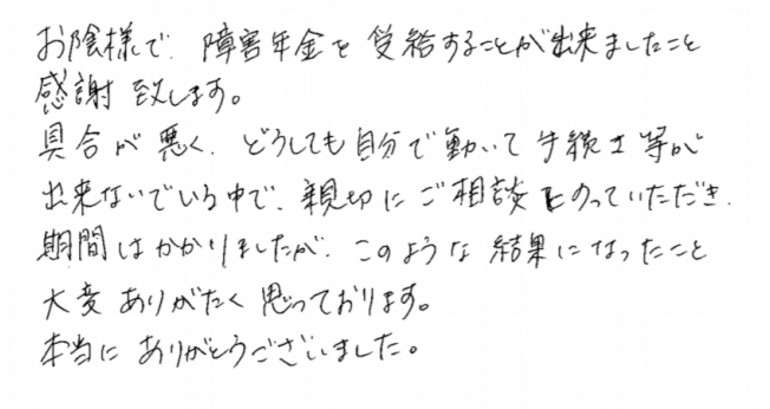 お陰様で、障害年金を受給することが出来ましたこと
感謝致します。
具合が悪く、どうしても自分で動いて手続き等が
出来ないでいる中で、親切にご相談にのっていただき、
期間はかかりましたが、このような結果になったこと
大変ありがたく思っております。
本当にありがとうございました。